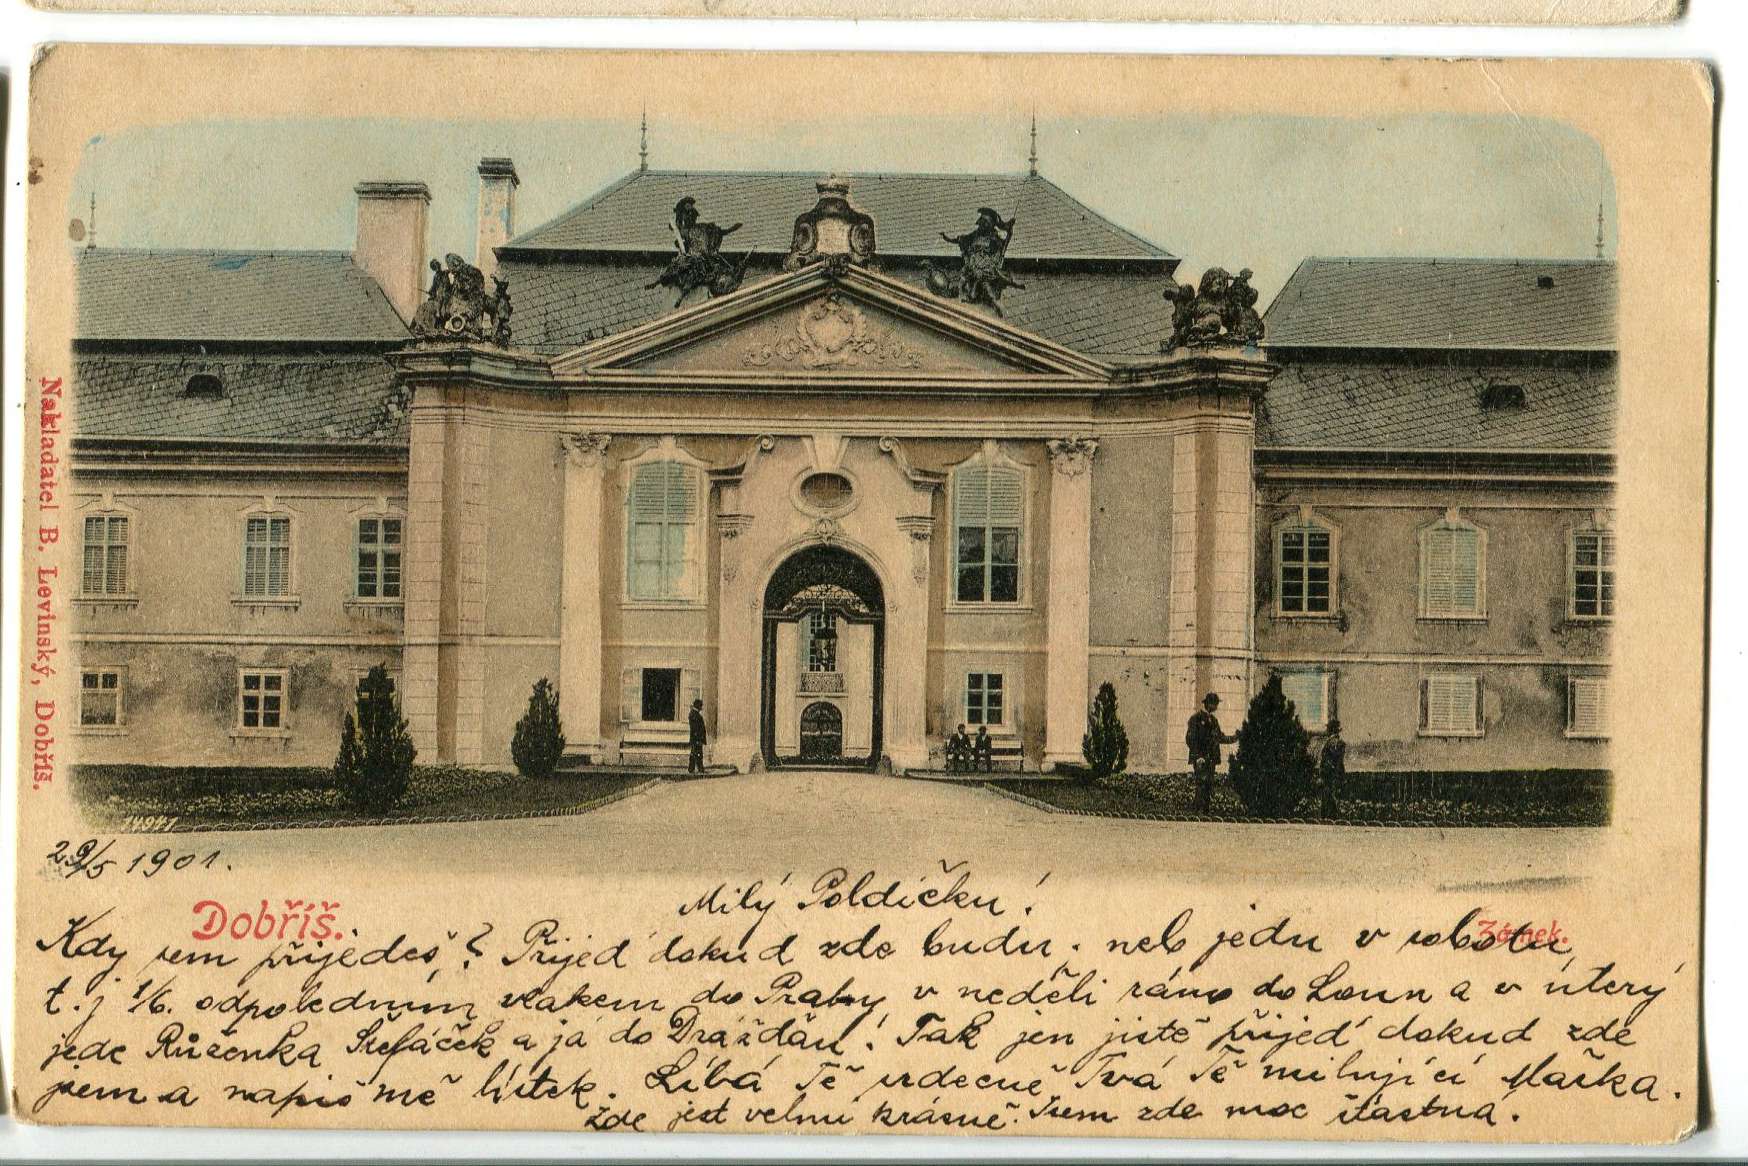 Nakladatel B. Levinský, Dobříš.
14941
29/5 1901.
Dobříš.
Zámek.
Milý Poldíčku!
Kdy sem přijedeš? Přijeď dokud zde budu, neb jedu v sobotu,
t. j 1/6. odpoledním vlakem do Prahy, v neděli ráno do Loun a v úterý
jede Růženka Štefáček a já do Drážďan! Tak jen jistě přijeď dokud zde
jsem a napiš mě lístek. Líbá Tě srdečně Tvá Tě milující Mařka.
Zde jest velmi krásně. Jsem zde moc šťastná.